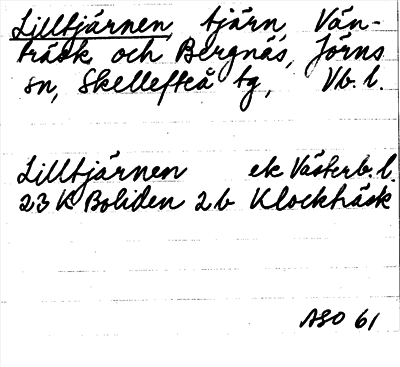 Lilltjärnen tjärn, Vän-
träsk och Bergnäs, Jörns
sn, Skellefteå tg, Vb. l.
Lilltjärnen ek Västerb. l.
23 K Boliden 2b Klockträsk
ASO 61